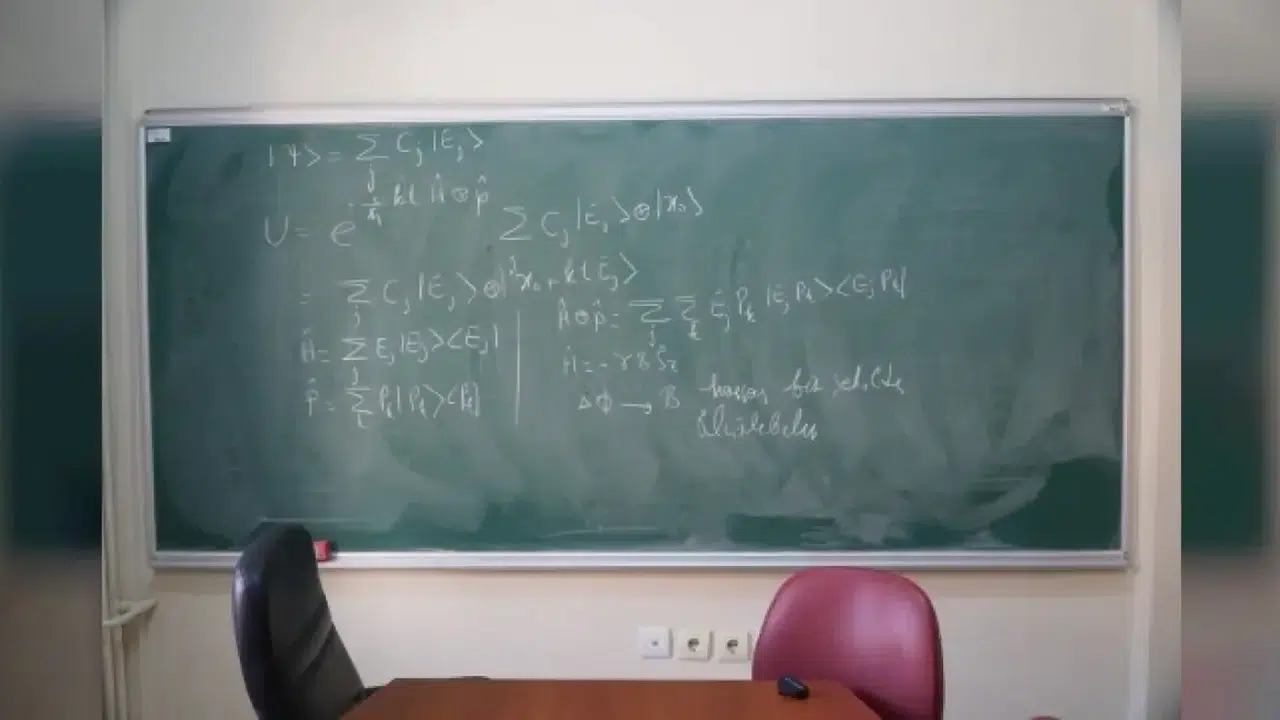 |Ψ> = Σ_j C_j |E_j>
U = e^{i/ħ kt Ĥ⊗p̂} Σ_j C_j |E_j> ⊗ |x₀>
= Σ_j C_j |E_j> ⊗ |x₀ + kt E_j>
Ĥ = Σ_j E_j |E_j> <E_j|
p̂ = Σ_k P_k |P_k> <P_k|
Ĥ⊗p̂ = Σ_j Σ_k E_j P_k |E_j P_k> <E_j P_k|
Ĥ = -γ B Ŝ_z
ΔΦ → B hassas bir şekilde
ölçülebilir